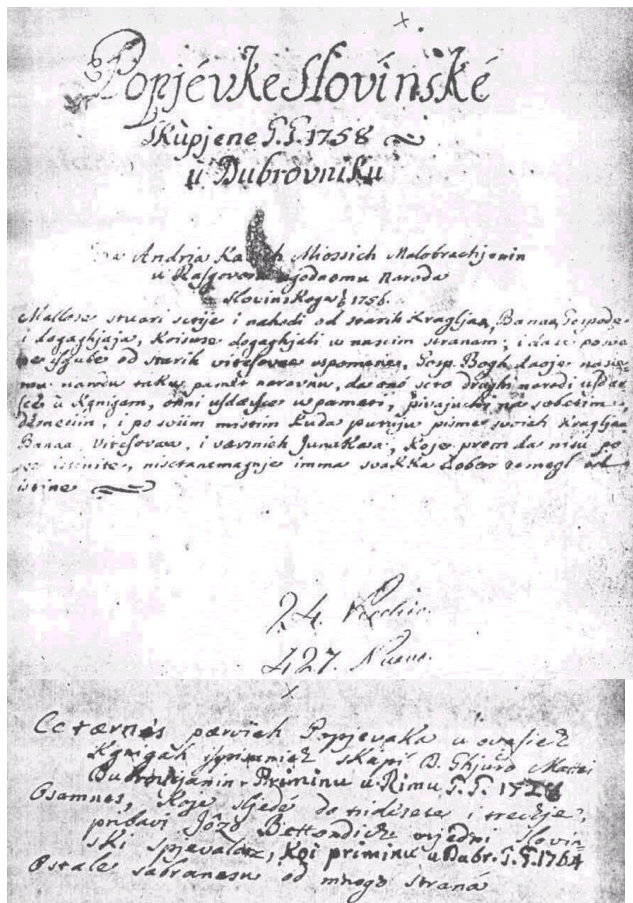 Popjévke Slovinské
skùpjene G.G. 1758
u Dubrovniku
Andria Kacich Miossich Malobrachjanin
u Razgovoru ugodnomu Naroda
Slovinskoga 1756.
Mallose stvari sctije i nahodi od starih Kragljaa, Banaa, Gospode
i dogaghjaja, Koisuse dogaghjali u nascim stranam; i dase posve
ne izgube od starih vitesovaa uspomene, Gosp. Bogh daoje nasce-
mu narodu taku pamet naravnu, da onò scto drughi narodi uzdar-
sce u Kgnigam, onni uzdarsce u pameti, pivajuchi na sobetim,
dernecim, i po svim mistim kuda putuju pisme svoich Kragljaa
Banaa, vitesovaa, i varsnich Junakaa, Koje prem da nisu po
sve istinite, niscta nemagnje imma svakka dobar temegl od
istine
24. Vecchie.
427. Nuove.
Cetarnés parvieh Popjevaka u ovizieh
Kgnigah skupi D. Ghjuro Mattei
Dubrovcjanin. Priminu u Rimu G.G. 1728
Osamnes, Koje sljede do trideseti i trechje,
pribavi Jôzo Bettondich vrjedni slovin-
ski spjevalaz, koi priminu u Dubr. G.G. 1764
Ostale sabranesu od mnogo straná